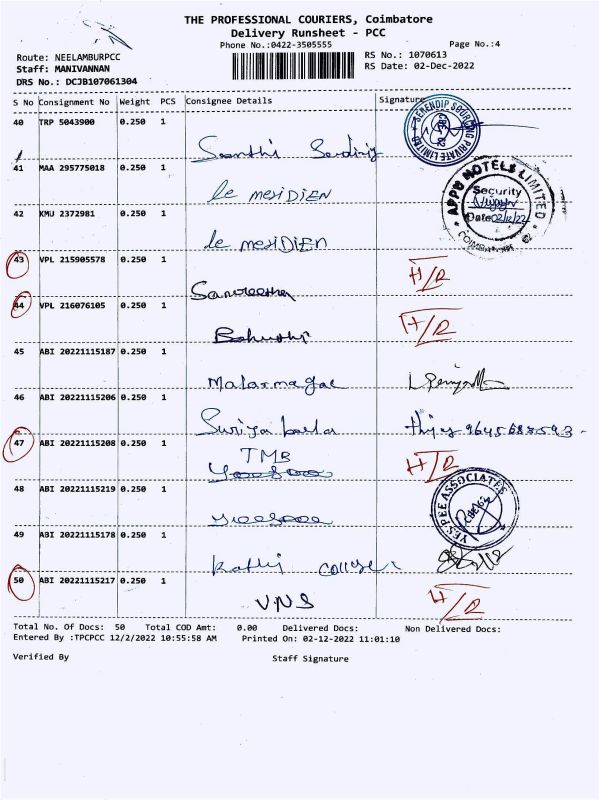 THE PROFESSIONAL COURIERS, Coimbatore
Delivery Runsheet - PCC
Phone No.:0422-3505555 Page No.:4
Route: NEELAMBURPCC RS No.: 1070613
Staff: MANIVANNAN RS Date: 02-Dec-2022
DRS No.: DCJB107061304
S No Consignment No Weight PCS Consignee Details Signature
40 TRP 5043900 0.250 1
SERENDIP SOURCING PRIVATE LIMITED
41 MAA 295775018 0.250 1
le meriDiEN
APPU HOTELS LIMITED
Security
Date 02/12/22
COIMBATORE
42 KMU 2372981 0.250 1
le meriDiEN
43 VPL 215905578 0.250 1
H/R
44 VPL 216076105 0.250 1
H/R
45 ABI 20221115187 0.250 1
Malarmagal
46 ABI 20221115206 0.250 1
9645688593
47 ABI 20221115208 0.250 1
TMB
H/R
48 ABI 20221115219 0.250 1
YES PEE ASSOCIATES
49 ABI 20221115178 0.250 1
college
50 ABI 20221115217 0.250 1
VNS
H/R
Total No. Of Docs: 50 Total COD Amt: 0.00 Delivered Docs: Non Delivered Docs:
Entered By :TPCPCC 12/2/2022 10:55:58 AM Printed On: 02-12-2022 11:01:10
Verified By Staff Signature